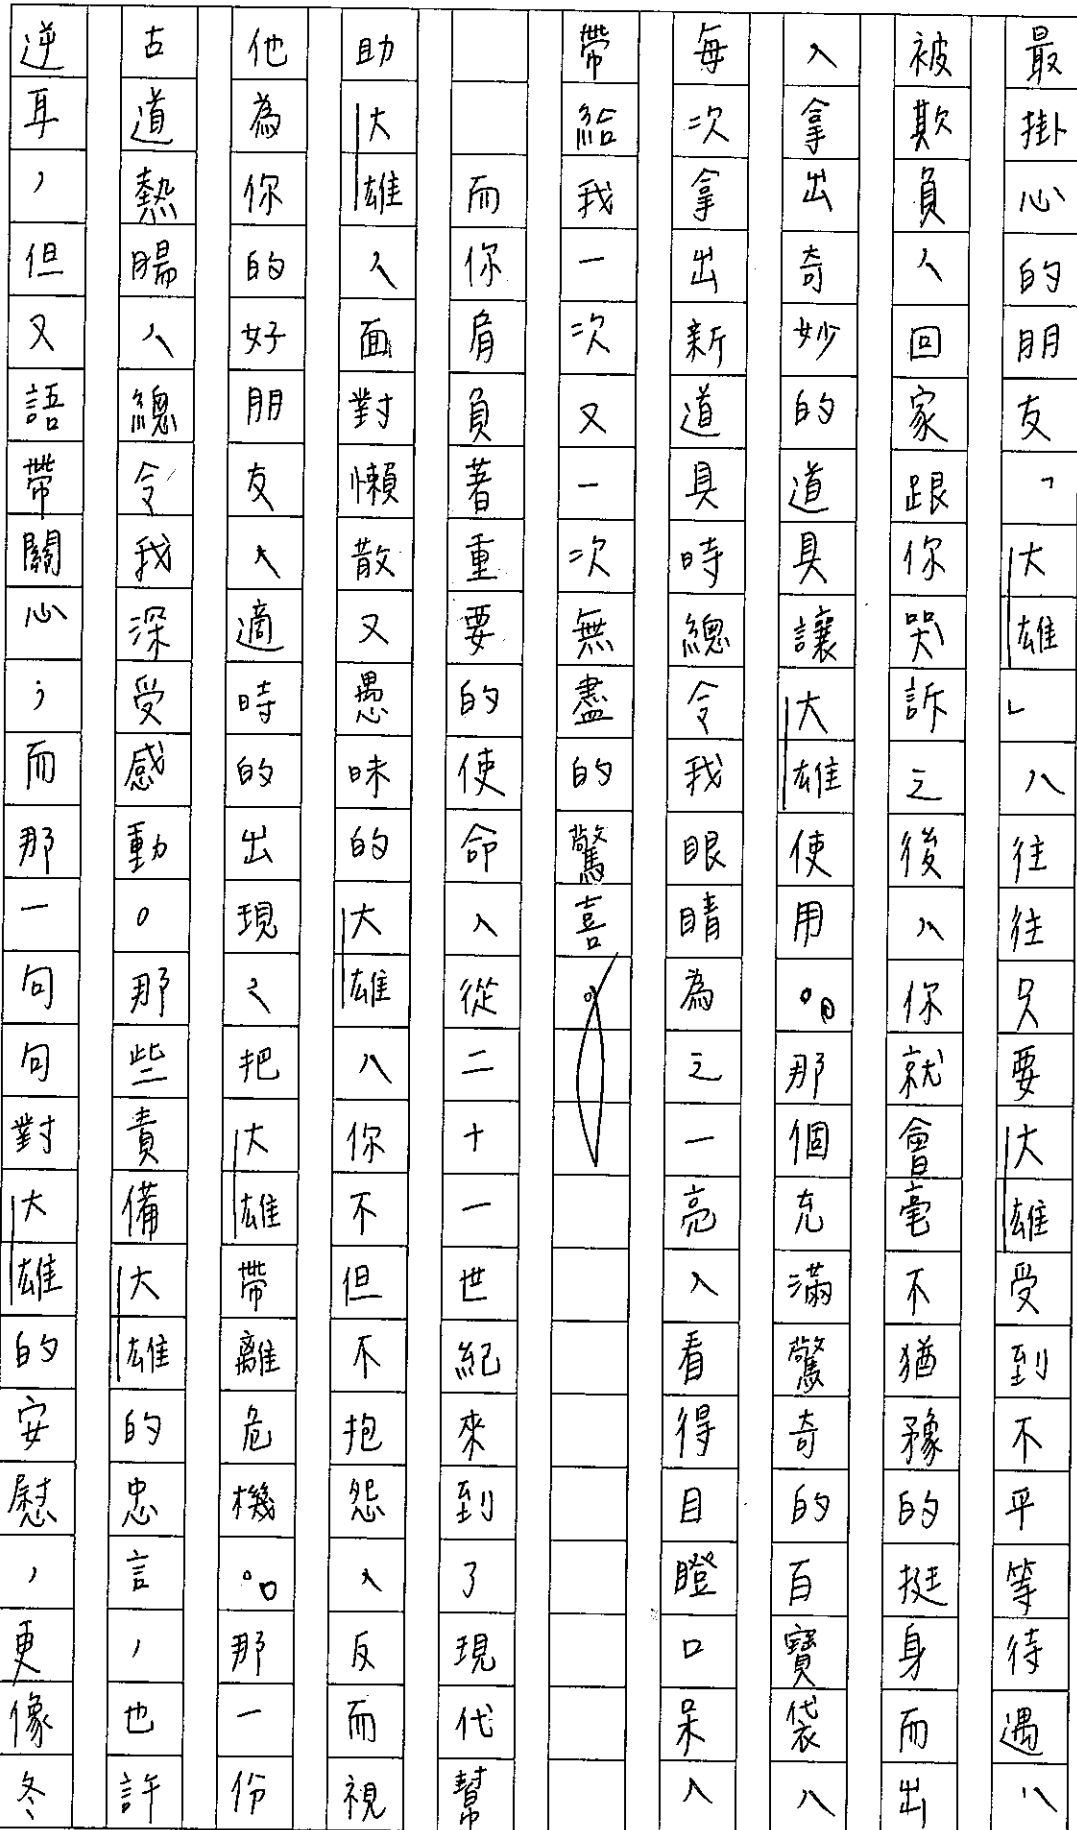 最掛心的朋友「大雄」,往往只要大雄受到不平等待遇,
被欺負,回家跟你哭訴之後,你就會毫不猶豫的挺身而出
,拿出奇妙的道具讓大雄使用。那個充滿驚奇的百寶袋,
每次拿出新道具時總令我眼睛為之一亮,看得目瞪口呆,
帶給我一次又一次無盡的驚喜。
而你肩負著重要的使命,從二十一世紀來到了現代幫
助大雄,面對懶散又愚昧的大雄,你不但不抱怨,反而視
他為你的好朋友,適時的出現,把大雄帶離危機。那一份
古道熱腸,總令我深受感動。那些責備大雄的忠言,也許
逆耳,但又語帶關心;而那一句句對大雄的安慰,更像冬